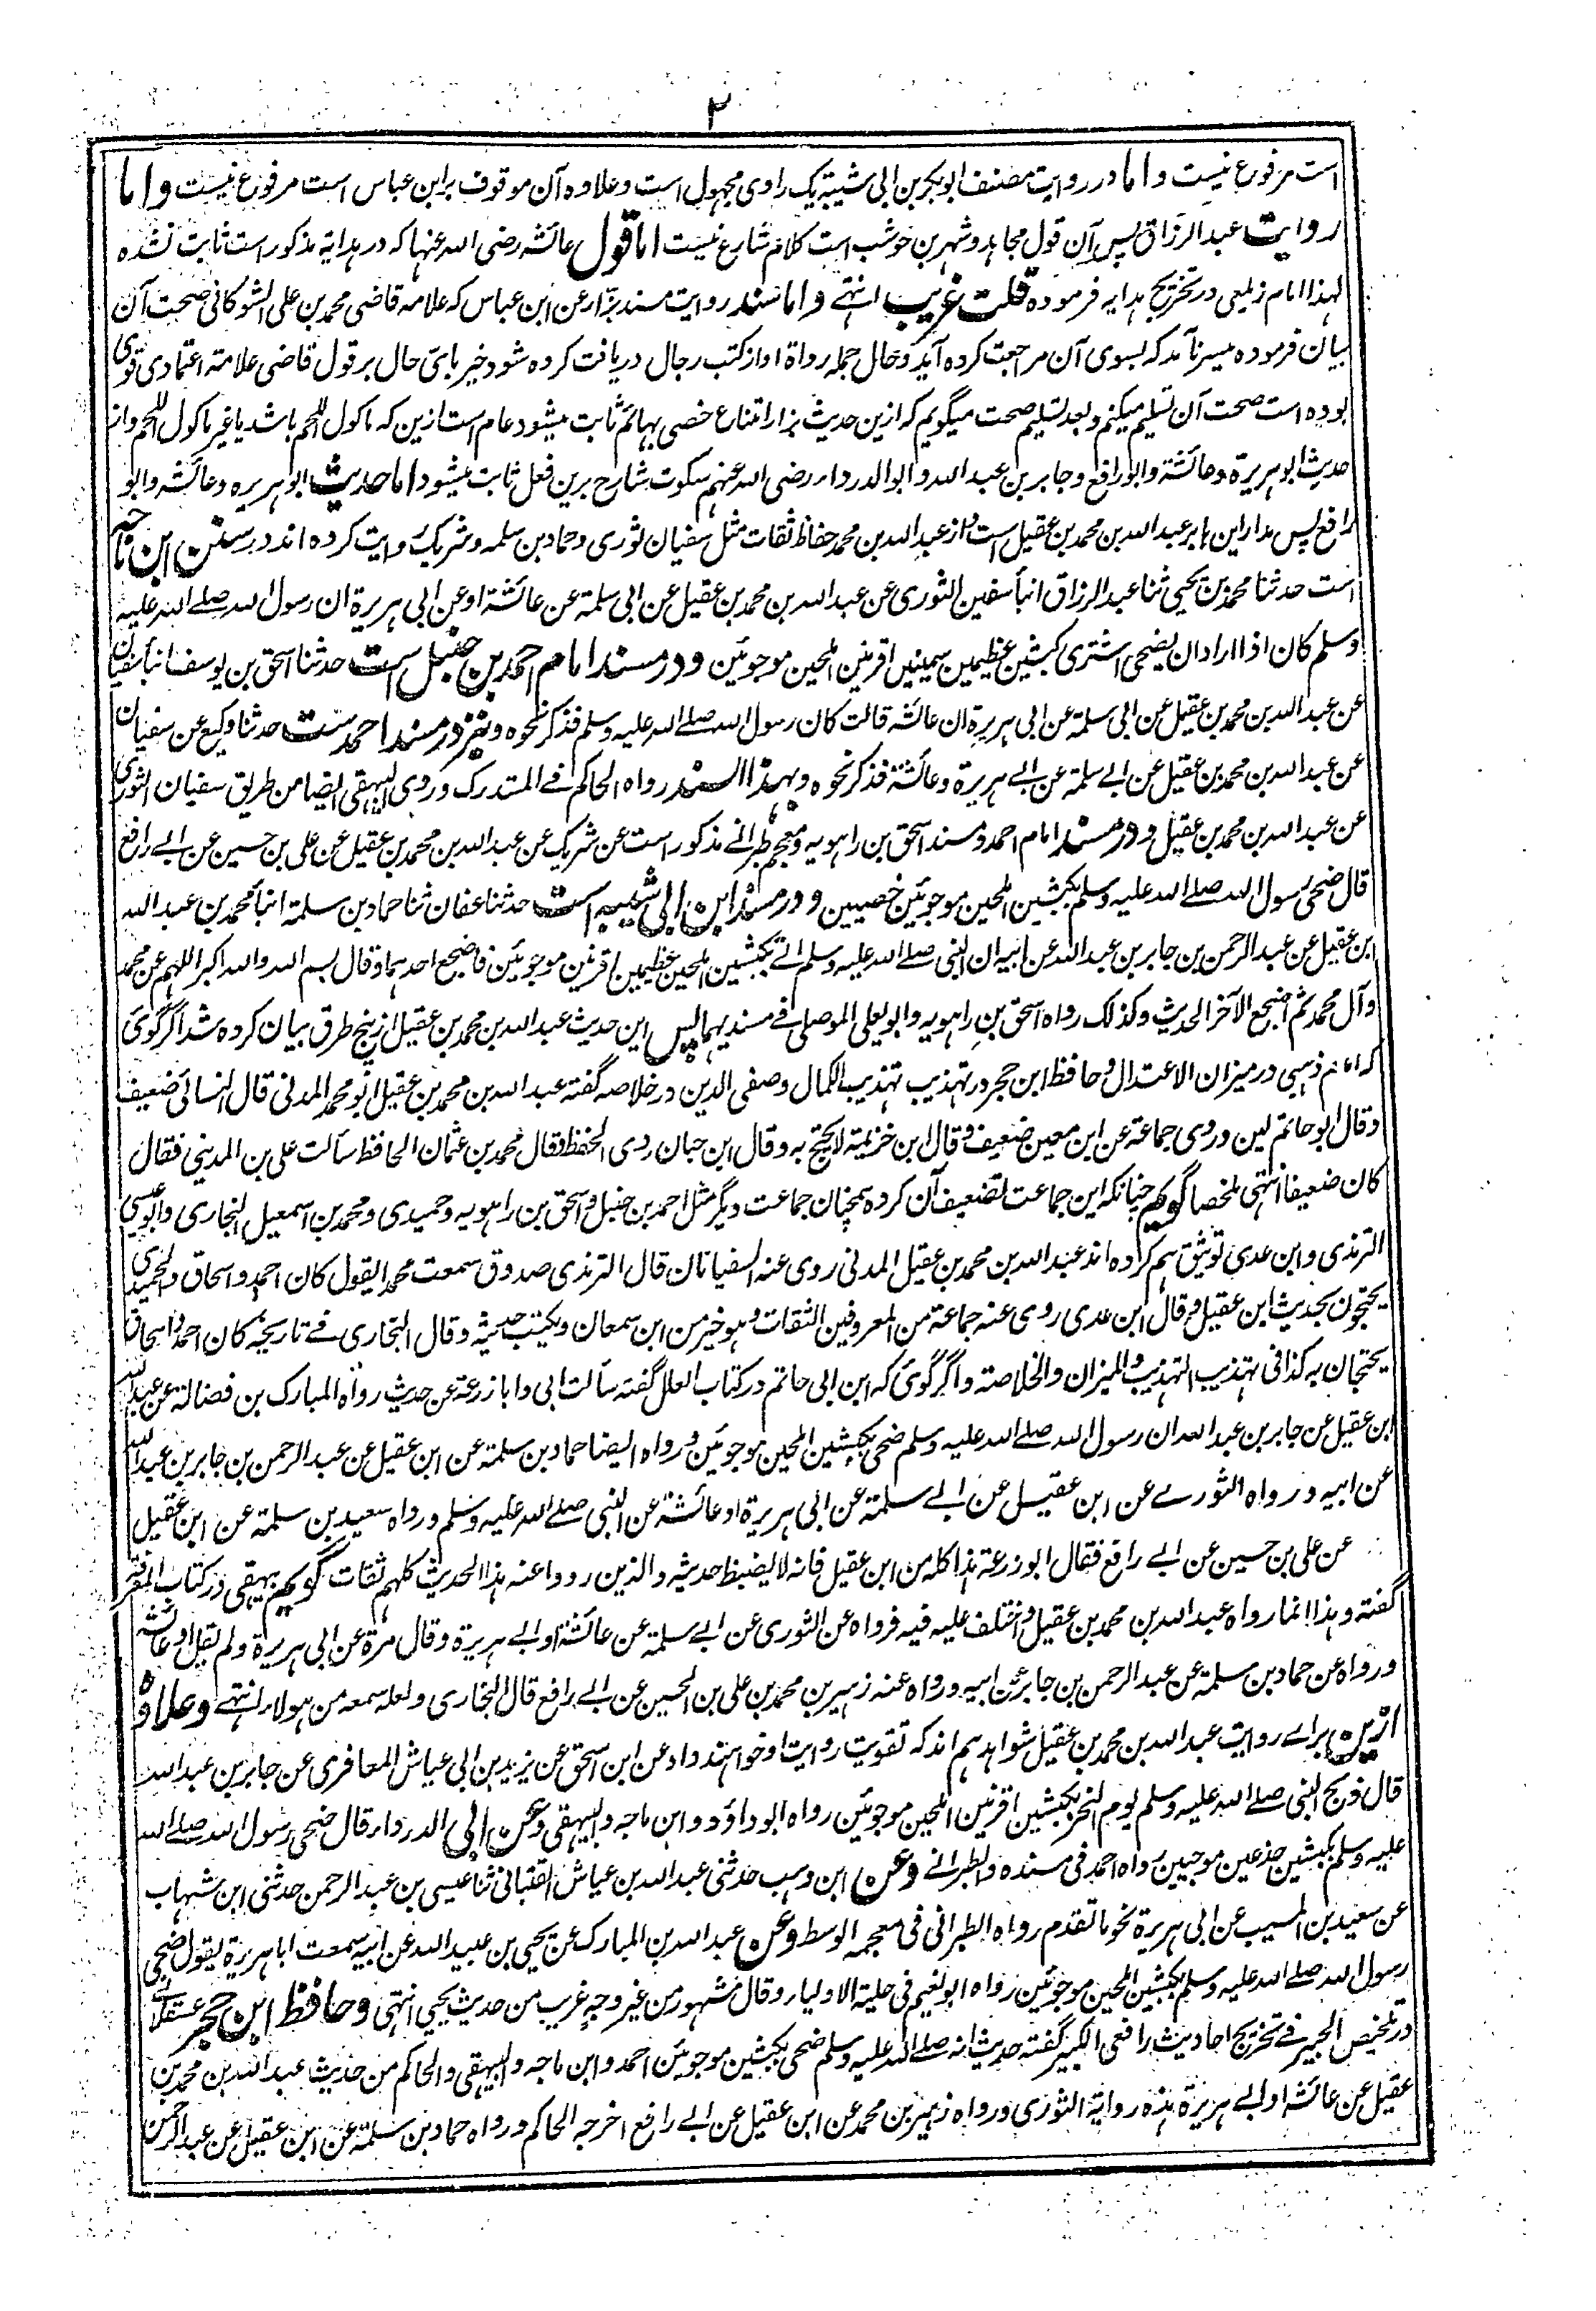 ۳
است مرفوع نیست و اما در روایت مصنف ابوبکر بن ابی شیبة یک راوی مجهول است و علاوه آن موقوف بر ابن عباس است مرفوع نیست و اما
روایت عبد الرزاق پس آن قول مجاهد و شهر بن حوشب است کلام شارع نیست اما قول عائشه رضی الله عنها که در هدایة مذکور است ثابت نشده
لهذا امام زیلعی در تخریج هدایه فرموده قلت غریب انتهے و اما سند روایت مسند بزار عن ابن عباس که علامه قاضی محمد بن علی الشوکانی صحت آن
بیان فرموده میسر نآمد که بسوی آن مراجعت کرده آید و حال جمله رواة او از کتب رجال دریافت کرده شود خیر بای حال بر قول قاضی علامة اعتمادی قوی
بوده است صحت آن تسلیم میکنم و بعد تسلیم صحت میگویم که ازین حدیث بزار امتناع خصی بهائم ثابت میشود عام است ازین که ماکول اللحم باشد یا غیر ماکول اللحم و از
حدیث ابو هریرة و عائشة و ابو رافع و جابر بن عبد الله و ابو الدرداء رضی الله عنهم سکوت شارح برین فعل ثابت میشود اما حدیث ابو هریره و عائشه و ابو
رافع پس مدار این بر عبد الله بن محمد بن عقیل است و از عبد الله بن محمد حفاظ ثقات مثل سفیان ثوری و حماد بن سلمه و شریک روایت کرده اند در سنن ابن ماجه
است حدثنا محمد بن یحیی ثنا عبد الرزاق انبأ سفین الثوری عن عبد الله بن محمد بن عقیل عن ابی سلمة عن عائشة او عن ابی هریرة ان رسول الله صلے الله علیه
وسلم کان اذا اراد ان یضحی اشتری کبشین عظیمین سمینین اقرنین املحین موجوئین و در مسند امام احمد بن حنبل است حدثنا اسحق بن یوسف انبأ سفیان
عن عبد الله بن محمد بن عقیل عن ابی سلمة عن ابی هریرة ان عائشه قالت کان رسول الله صلے الله علیه وسلم فذکر نحوه و نیز در مسند احمد ست حدثنا وکیع عن سفیان
عن عبد الله بن محمد بن عقیل عن ابے سلمة عن ابے هریرة و عائشة فذکر نحوه و بهذا السند رواه الحاکم فے المستدرک و روی البیهقی ایضا من طریق سفیان الثوری
عن عبد الله بن محمد بن عقیل و در مسند امام احمد و مسند اسحق بن راهویه و معجم طبرانے مذکور است عن شریک عن عبد الله بن محمد بن عقیل عن علی بن حسین عن ابے رافع
قال ضحی رسول الله صلے الله علیه وسلم بکبشین املحین موجوئین خصیین و در مسند ابن ابی شیبه است حدثنا عفان ثنا حماد بن سلمة انبأ محمد بن عبد الله
ابن عقیل عن عبد الرحمن بن جابر بن عبد الله عن ابیه ان النبی صلے الله علیه وسلم اتے بکبشین املحین عظیمین اقرنین موجوئین فاضجع احدهما و قال بسم الله والله اکبر اللهم عن محمد
و آل محمد ثم اضجع الآخر الحدیث و کذلک رواه اسحق بن راهویه و ابو یعلی الموصلی فے مسندیهما پس این حدیث عبد الله بن محمد بن عقیل از پنج طرق بیان کرده شد اگر گوئی
که امام ذهبی در میزان الاعتدال و حافظ ابن حجر در تهذیب تهذیب الکمال و صفی الدین در خلاصه گفته عبد الله بن محمد بن عقیل ابو محمد المدنی قال النسائی ضعیف
و قال ابو حاتم لین و روی جماعة عن ابن معین ضعیف و قال ابن خزیمة لا یحتج به و قال ابن حبان ردی الحفظ و قال محمد بن عثمان الحافظ سألت علی بن المدینی فقال
کان ضعیفا انتهی ملخصا گویم چنانکه این جماعت تضعیف آن کرده همچنان جماعت دیگر مثل احمد بن حنبل و اسحق بن راهویه و حمیدی و محمد بن اسمعیل البخاری و ابو عیسی
الترمذی و ابن عدی توثیق هم کرده اند عبد الله بن محمد بن عقیل المدنی روی عنه السفیانان قال الترمذی صدوق سمعت محمدا یقول کان احمد و اسحاق و الحمیدی
یحتجون بحدیث ابن عقیل و قال ابن عدی روی عنه جماعة من المعروفین الثقات و هو خیر من ابن سمعان و یکتب حدیثه و قال البخاری فے تاریخه کان احمد و اسحاق
یحتجان به کذا فی تهذیب التهذیب و المیزان و الخلاصة و اگر گوئی که ابن ابی حاتم در کتاب العلل گفته سألت ابی و ابا زرعة عن حدیث رواه المبارک بن فضالة عن عبد الله
ابن عقیل عن جابر بن عبد الله ان رسول الله صلے الله علیه وسلم ضحی بکبشین املحین موجوئین و رواه ایضا حماد بن سلمة عن ابن عقیل عن عبد الرحمن بن جابر بن عبد الله
عن ابیه و رواه الثورے عن ابن عقیل عن ابے سلمة عن ابی هریرة او عائشة عن النبی صلے الله علیه وسلم و رواه سعید بن سلمة عن ابن عقیل
عن علی بن حسین عن ابے رافع فقال ابو زرعة هذا کله من ابن عقیل فانه لا یضبط حدیثه و الذین رووا عنه هذا الحدیث کلهم ثقات گویم بیهقی در کتاب المعرفة
گفته و هذا انما رواه عبد الله بن محمد بن عقیل و اختلف علیه فیه فرواه عن الثوری عن ابے سلمة عن عائشة او ابے هریرة و قال مرة عن ابی هریرة و لم یقل او عائشة
و رواه عن حماد بن سلمة عن عبد الرحمن بن جابر عن ابیه و رواه عنه زهیر بن محمد بن علی بن الحسین عن ابے رافع قال البخاری و لعله سمعه من هولاء انتهے و علاوه
ازین براے روایت عبد الله بن محمد بن عقیل شواهد هم اند که تقویت روایت او خواهند داد عن ابن اسحق عن یزید بن ابی عیاش المعافری عن جابر بن عبد الله
قال ذبح النبی صلے الله علیه وسلم یوم النحر بکبشین اقرنین املحین موجوئین رواه ابو داؤد و ابن ماجه و البیهقی و عن ابی الدرداء قال ضحی رسول الله صلے الله
علیه وسلم بکبشین جذعین موجیین رواه احمد فی مسنده و الطبرانے و عن ابن وهب حدثنی عبد الله بن عیاش القتبانی ثنا عیسی بن عبد الرحمن حدثنی ابن شهاب
عن سعید بن المسیب عن ابی هریرة نحو ما تقدم رواه الطبرانی فی معجمه الوسط و عن عبد الله بن المبارک عن یحیی بن عبید الله عن ابیه سمعت ابا هریرة یقول ضحی
رسول الله صلے الله علیه وسلم بکبشین املحین موجوئین رواه ابو نعیم فی حلیة الاولیاء و قال مشهور من غیر وجه غریب من حدیث یحیی انتهی و حافظ ابن حجر عسقلانے
در تلخیص الحبیر فے تخریج احادیث رافعی الکبیر گفته حدیث انه صلے الله علیه وسلم ضحی بکبشین موجوئین احمد و ابن ماجه و البیهقی و الحاکم من حدیث عبد الله بن محمد بن
عقیل عن عائشة او ابے هریرة هذه روایة الثوری و رواه زهیر بن محمد عن ابن عقیل عن ابے رافع اخرجه الحاکم و رواه حماد بن سلمة عن ابن عقیل عن عبد الرحمن